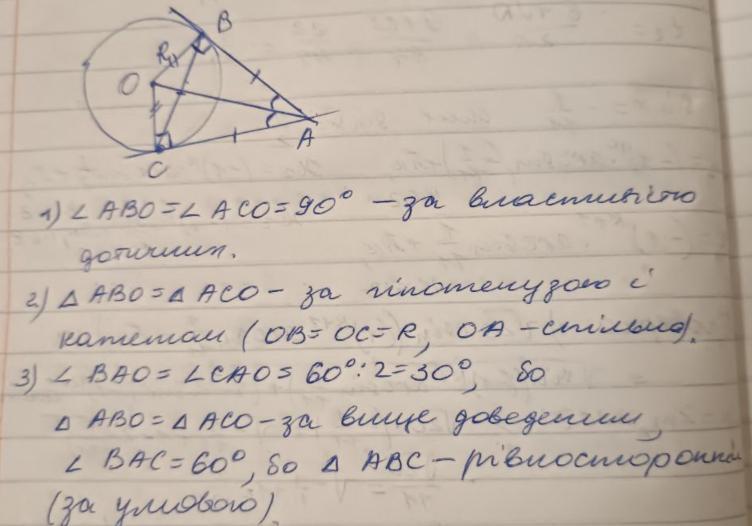 B
R
O
A
C
1) ∠ABO = ∠ACO = 90° – за властивістю
дотичних.
2) △ABO = △ACO – за гіпотенузою і
катетом (OB = OC = R, OA – спільна).
3) ∠BAO = ∠CAO = 60° : 2 = 30°, бо
△ABO = △ACO – за вище доведеним,
∠BAC = 60°, бо △ABC – рівносторонній
(за умовою)